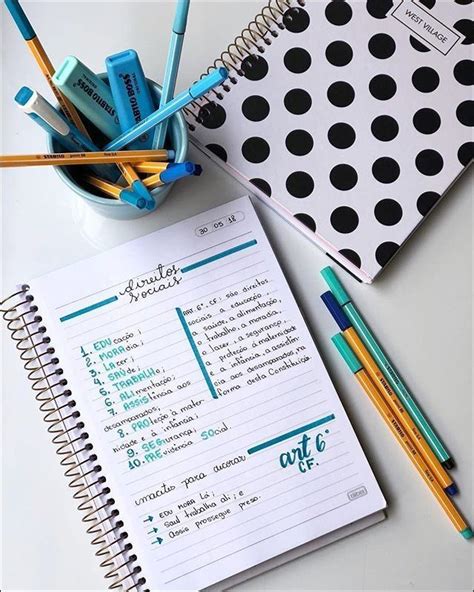 WEST VILLAGE
STABILO BOSS
STABILO BOSS
30 05 18
direitos
sociais
1. EDUcação ;
2. MORAdia ;
3. LAzer ;
4. SAÚde ;
5. TRABALHO ;
6. ALimentação ;
7. ASSIstência aos
desamparados ;
8. PROteção à mater-
nidade e à infância ;
9. SEGurança ;
10. PREvidência SOcial.
Art. 6º, CF: são direitos
sociais a educação,
a saúde, a alimentação,
o trabalho, a moradia,
o lazer, a segurança,
a proteção à maternidade
e à infância, a assistên-
cia aos desamparados, na
forma desta Constituição
macetes para decorar
→ EDU MORA Lá ;
→ Saul trabalha ali ; e
→ Assis prossegue preso.
art 6º
CF.